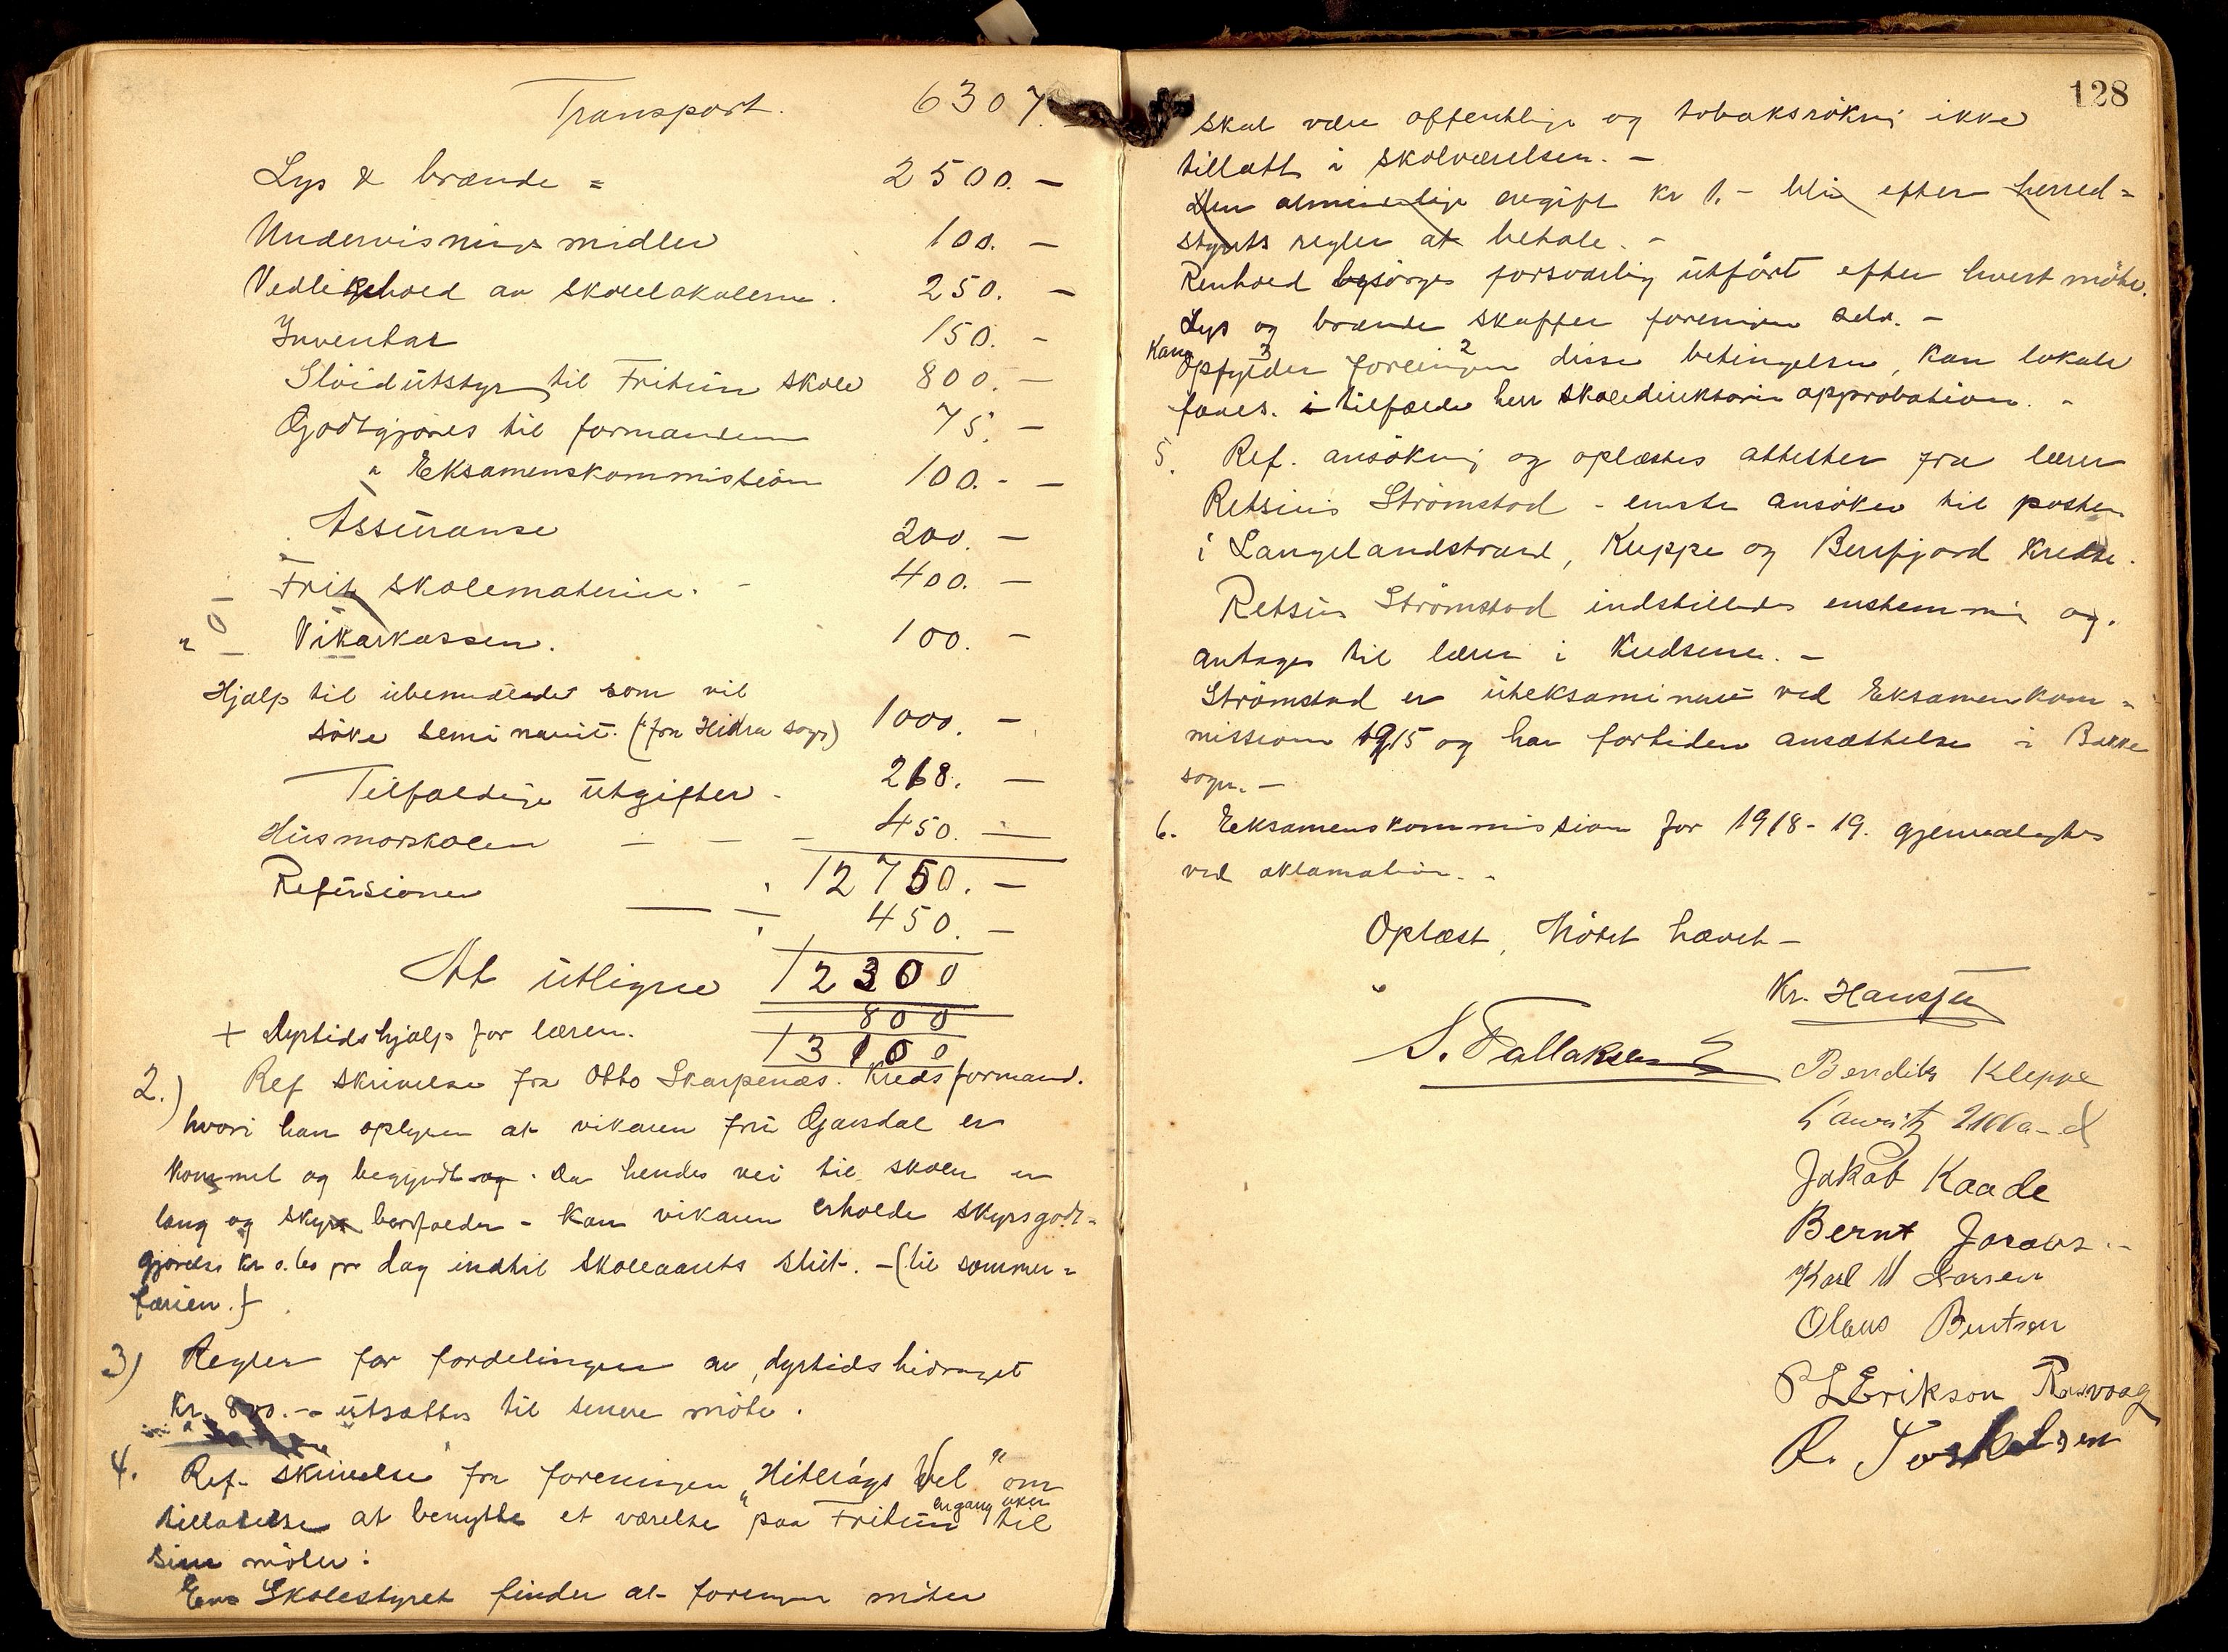 Transport. 6307.
Lys & brænde = 2500. —
Undervisnings midler 100. —
Vedlikehold av skolelokalerne. 250. —
Inventar 150. —
Slöidutstyr til Fritun skole 800. —
Godtgjöres til formanden 75. —
" Eksamenskommistion 100. - —
Assuranse 200. —
Frit skolemateriel. - 400. —
" Vikarkassen. 100. —
Hjælp til ubemidlede som vil
söke seminariet. (fra Hidra sogn) 1000. —
Tilfældige utgifter - 268. —
Husmorskolen — — — 450. —
12750. —
Refusioner 450. —
At utligne 12300
800
+ Dyrtidshjælp for læren.
13100
2.) Ref skrivelse fra Otto Skarpenæs. Kredsformand.
hvori han oplyser at vikaren fru Gjarsdal er
kommet og begyndt og. Da hendes vei til skolen er
lang og skyss - kan vikaren erholde skyssgodt-
gjörelse kr 0.60 pr dag indtil skoleaarets slut. - (til sommer-
færien.)
3) Regler for fordelingen av dyrtidsbidraget
Kr. 800. - utsættes til senere möte.
4. Ref. skrivelse fra foreningen "Hitterögs Vel" om
engang uken
tillatelse at benytte et værelse paa Fritun til
sine möter:
Skolestyret finder at foreningens möter
128
skal være offentlige og tobaksrökning ikke
tillatt i skolværelsen. —
Den almindelige avgift kr 1. - bli efter herred=
styrets regler at betale. -
Renhold besörges forsvarlig utfört efter hvert möte.
Lys og brænde skaffer foreningen selv. -
Kan 3 2
Opfylder foreningen disse betingelser, kan lokale
faaes. i tilfælde herr skoledirektörens approbation. -
5. Ref. ansökning og oplæstes attester fra lærer
Retsius Strömstad - eneste ansöker til posten
i Langelandstrand, Kleppe og Bersfjord Kredse.
Retsius Strömstad indstilledes enstemmig og.
antages til lærer i Kredsene. -
Strömstad er uteksamineret ved Eksamenskom=
missionen 1915 og har fortiden ansættelse i Bakke
sogn. —
6. Eeksamenskommission for 1918-19. gjenvalgtes
ved aklamation. -
Oplæst, Mötet hævet —
Kr. Hansen
S. Tallaksen
Bendik Kleppe
Lauritz
Jakob Kaade
Bernt
Karl M Larsen
Olaus Berntsen
P L Erikson Rasvaag
R. Torkelsen